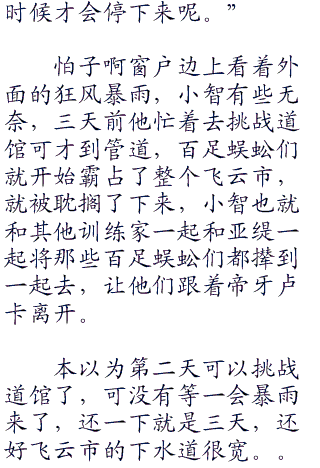 时候才会停下来呢。”
怕子啊窗户边上看着外
面的狂风暴雨，小智有些无
奈，三天前他忙着去挑战道
馆可才到管道，百足蜈蚣们
就开始霸占了整个飞云市，
就被耽搁了下来，小智也就
和其他训练家一起和亚缇一
起将那些百足蜈蚣们都撵到
一起去，让他们跟着帝牙卢
卡离开。
本以为第二天可以挑战
道馆了，可没有等一会暴雨
来了，还一下就是三天，还
好飞云市的下水道很宽。。